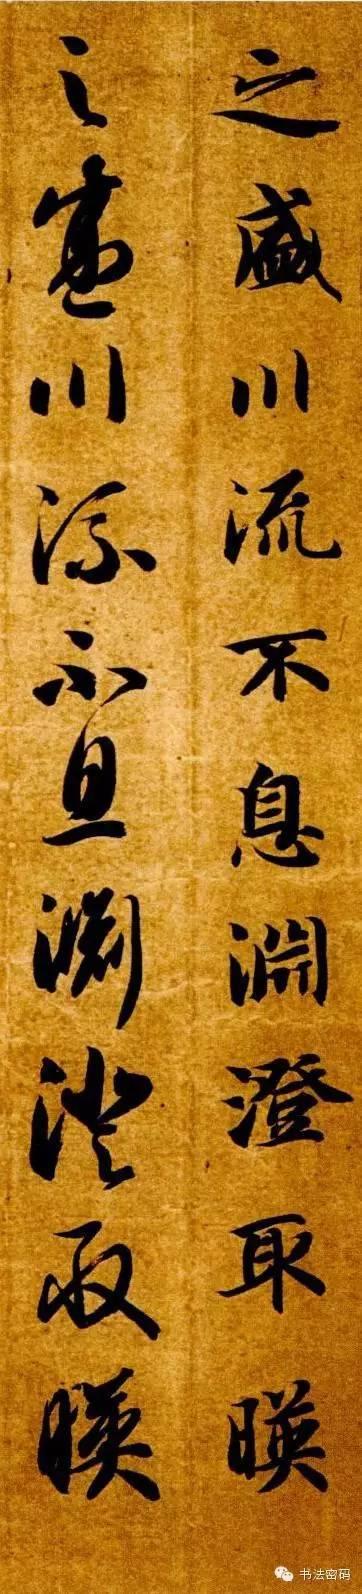 之盛川流不息淵澄取暎
之盛川流不息淵澄取暎
书法密码